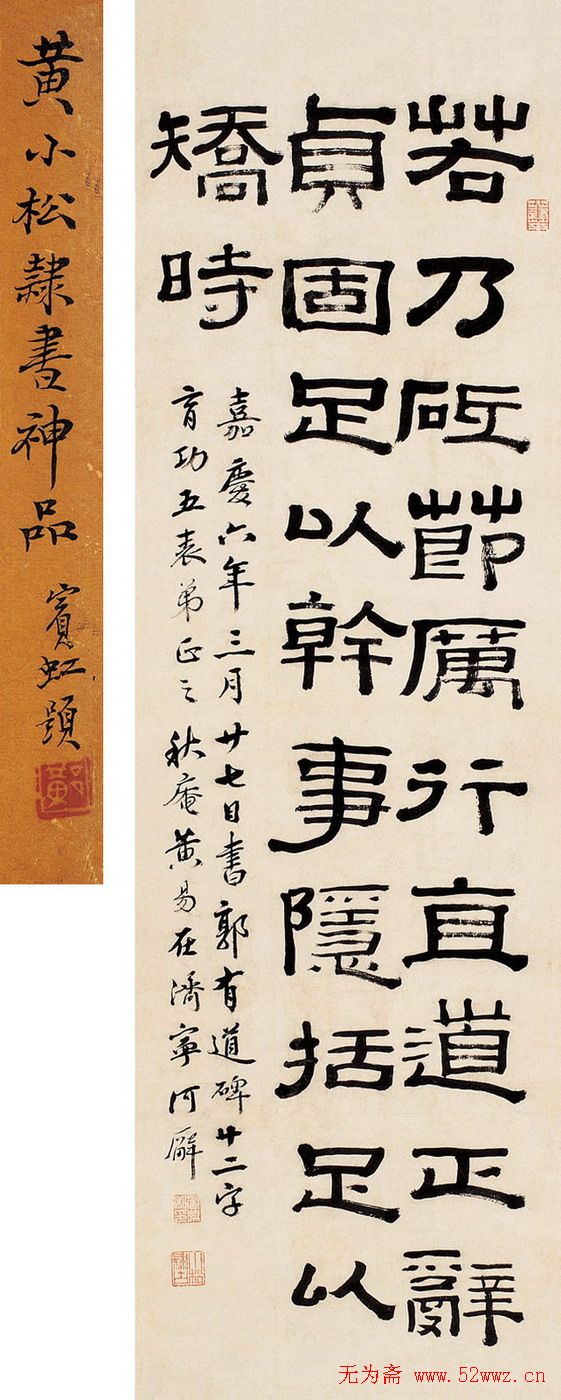 若乃砥節厲行直道正辭
貞固足以幹事隱括足以
矯時
嘉慶六年三月廿七日書郭有道碑廿二字
育功五表弟正之秋庵黃易在濟寧河廨
黃小松隸書神品
賓虹題
无为斋 www.52wwz.cn